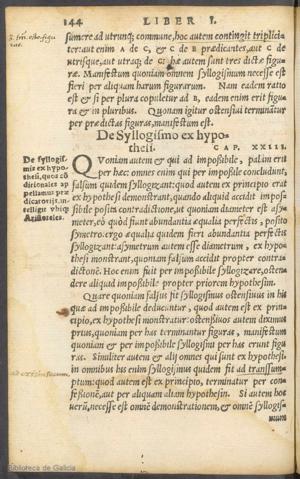 144 LIBER I.
sumere ad utrunq; commune, hoc autem contingit triplici-
ter: aut enim A de C, & C de B prædicantes, aut C de
utrisque, aut utraq; de C: hæ autem sunt tres dictæ figu-
ræ. Manifestum quoniam omnem syllogismum necesse est
fieri per aliquam harum figurarum. Nam eadem ratio
est & si per plura copuletur ad B, eadem enim erit figu-
ra & in pluribus. Quonam igitur ostensivi terminãtur
per prædictas figuras, manifestum est.
De Syllogismo ex hypo-
thesi. CAP. XXIII.
De syllogis-
mis ex hypo-
thesi, quos cõ
ditionales ap
pellamus præ
dicatorijs, in-
tellige ubiq;
Aristoteles.
QVoniam autem & qui ad impoßibile, palàm erit
per hæc: omnes enim qui per impoßibile concludunt,
falsum quidem syllogizant: quod autem ex principio erat
ex hypothesi demonstrant, quando aliquid accidit impoß-
bile posita contradictione, ut quoniam diameter est asy-
meter, eò quòd fiunt abundantia æqualia perfectis, posito
symetro. ergo æqualia quidem fieri abundantia perfectis
syllogizant: asymetrum autem esse diametrum, ex hypo-
thesi monstrant, quoniam falsum accidit propter contra-
dictionẽ. Hoc enim fuit per impoßibile syllogizare, osten-
dere aliquid impoßibile propter priorem hypothesim.
Quare quoniam falsus fit syllogismus ostensivus in his
quæ ad impoßibile deducuntur, quod autem est ex prin-
cipio, ex hypothesi monstratur: ostensivos autem diximus
prius, quoniam per has terminantur figuras, manifestum
quoniam & per impoßibile syllogismi per has erunt figu-
ras. Similiter autem & alij omnes qui sunt ex hypothesi.
in omnibus his enim syllogismus quidem fit ad transsum-
ptum: quod autem est ex principio, terminatur per con-
feßionẽ, aut per aliquam aliam hypothesin. Si autem hoc
uerũ, necesse est omnẽ demonstrationem, & omnẽ syllogis-
mum
Biblioteca de Galicia